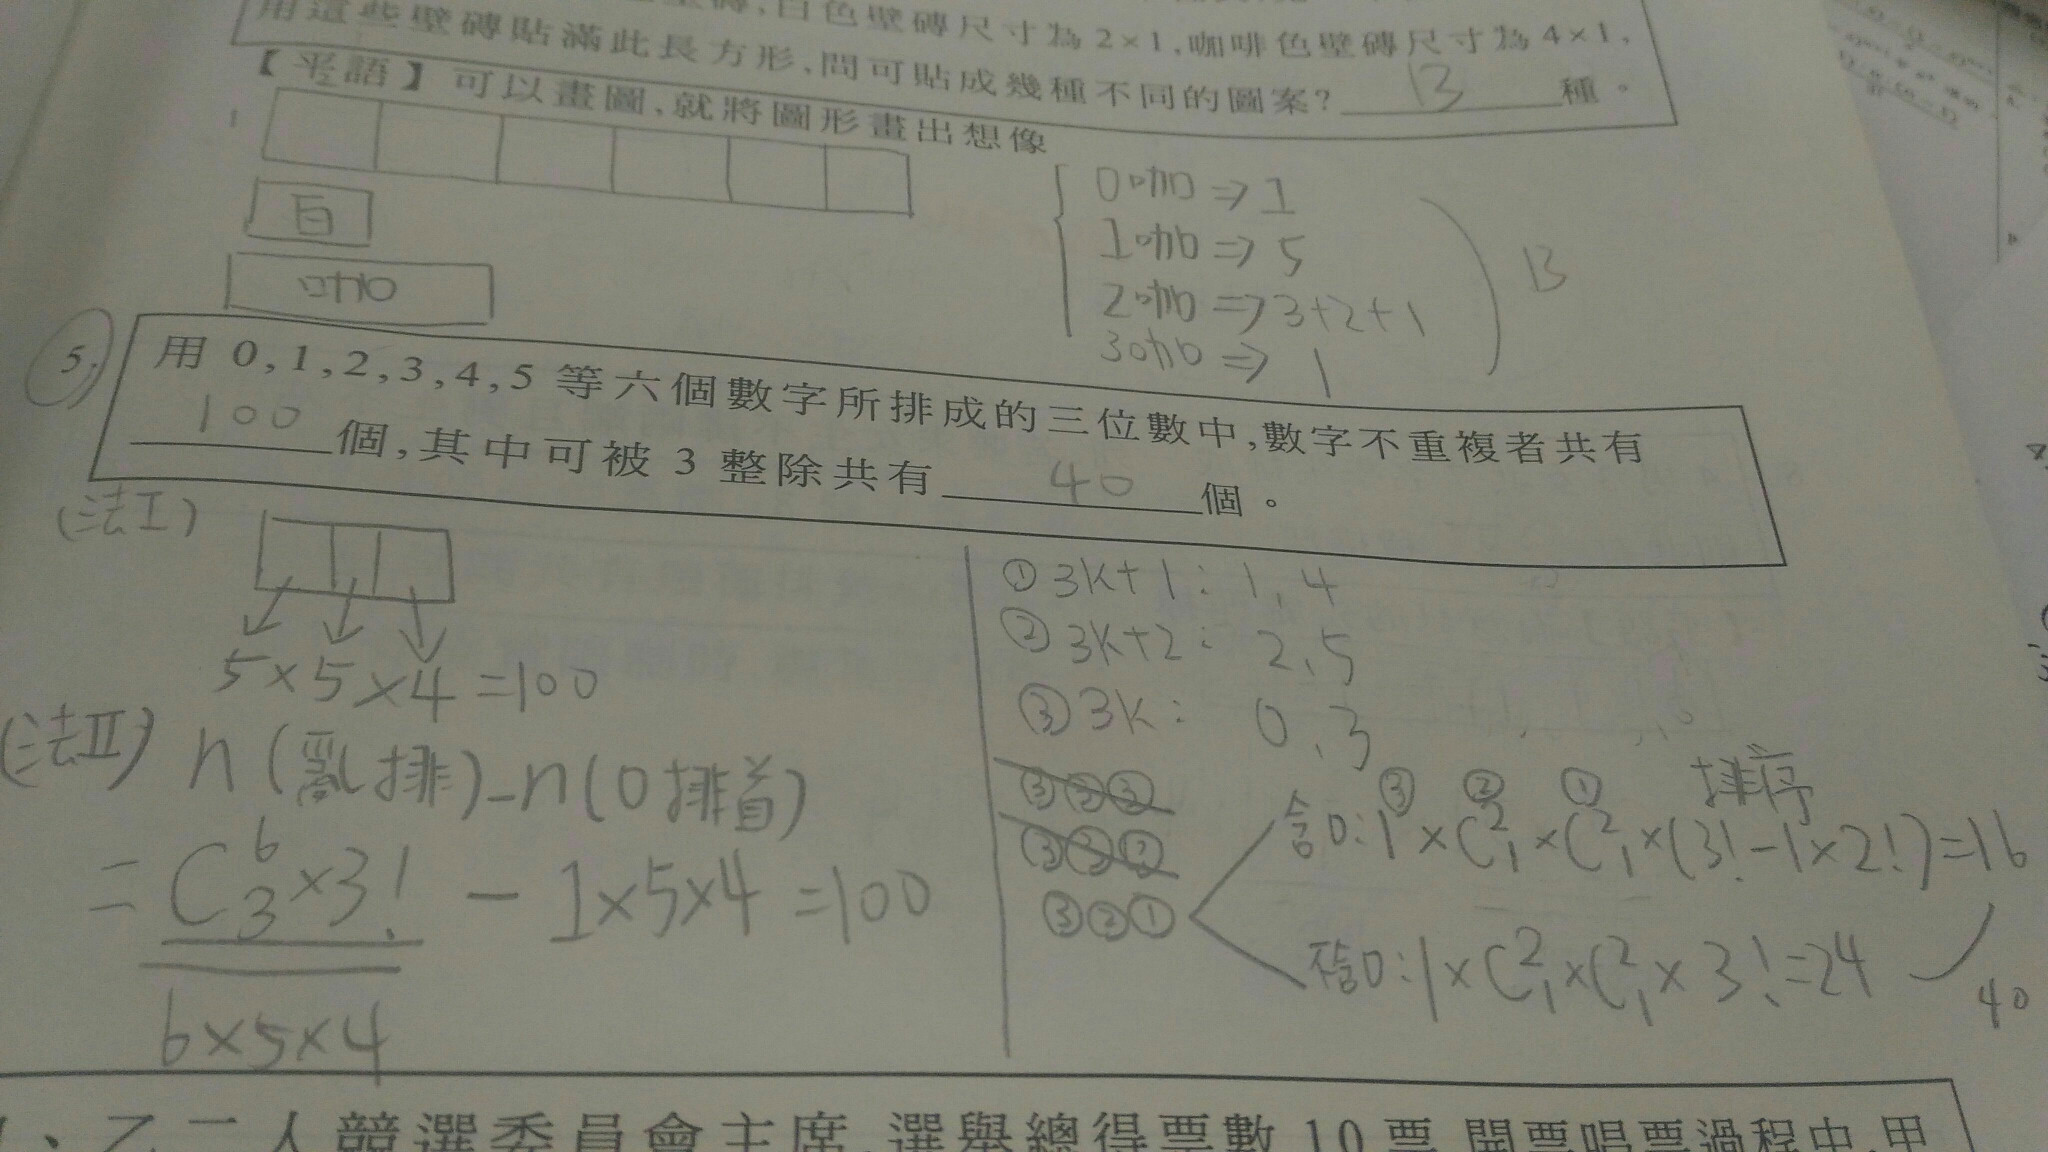 白色壁磚尺寸為2×1,咖啡色壁磚尺寸為4×1,
用這些壁磚貼滿此長方形,問可貼成幾種不同的圖案? 13 種。
可以畫圖,就將圖形畫出想像
白
咖
0咖⇒1
1咖⇒5
2咖⇒3+2+1
3咖⇒1
13
5.
用 0,1,2,3,4,5 等六個數字所排成的三位數中,數字不重複者共有
100 個,其中可被 3 整除共有 40 個。
(法I)
5×5×4=100
(法II) n(亂排)-n(0排首)
= C⁶₃×3! - 1×5×4 =100
6×5×4
①3k+1: 1,4
②3k+2: 2,5
③3k: 0,3
③③③
③③②
③②①
③ ② ① 排序
含0:1×C²₁×C²₁×(3!-1×2!)=16
不含0:1×C²₁×C²₁×3!=24
40
、乙二人競選委員會主席,選舉總得票數10票,開票唱票過程中,甲